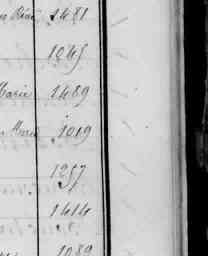 1481
1045
Marie 1489
Marie 1019
1257
1414
1089